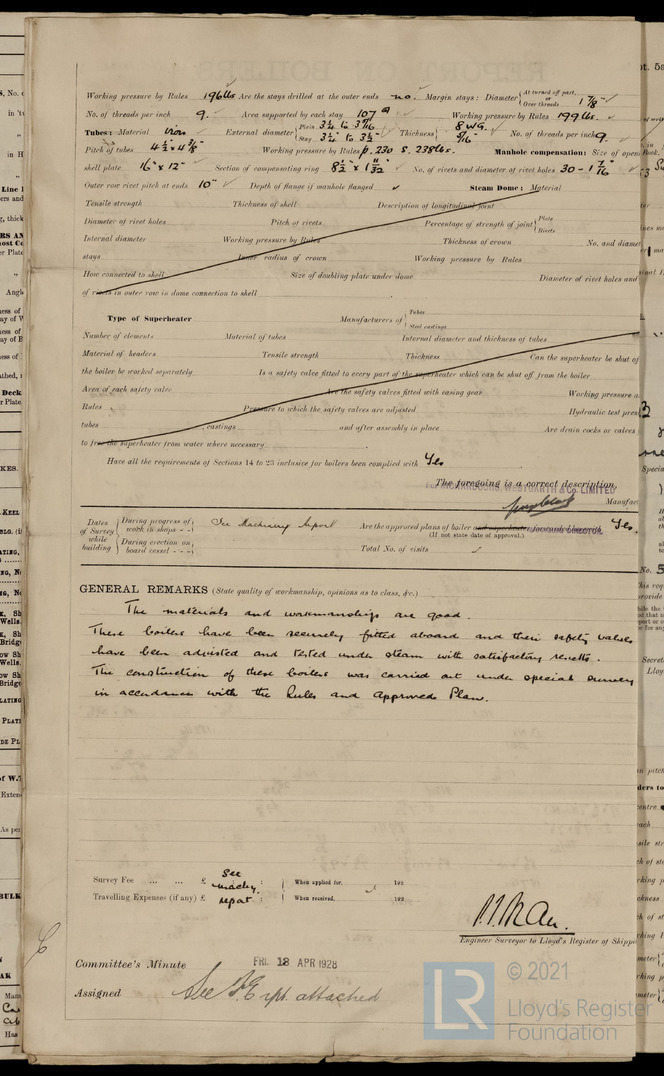 Working pressure by Rules 196 lbs Are the stays drilled at the outer ends no. Margin stays: Diameter { At turned off part, or Over threads 1 7/8"
No. of threads per inch 9. Area supported by each stay 107 Working pressure by Rules 199 lbs.
Tubes: Material Iron External diameter { Plain 3 1/4 Stay 3 1/4 Thickness { 8 WG. 5/16" No. of threads per inch 9.
Pitch of tubes 4 1/2" x 4 3/8" Working pressure by Rules P. 230 S. 238 lbs. Manhole compensation: Size of open
shell plate 16" x 12" Section of compensating ring 8 1/2" x 1 11/32 No. of rivets and diameter of rivet holes 30 - 1 7/16"
Outer row rivet pitch at ends 10" Depth of flange if manhole flanged Steam Dome: Material
Tensile strength Thickness of shell Description of longitudinal joint
Diameter of rivet holes Pitch of rivets Percentage of strength of joint { Plate Rivets
Internal diameter Working pressure by Rules Thickness of crown No. and diame
stays Inner radius of crown Working pressure by Rules
How connected to shell Size of doubling plate under dome Diameter of rivet holes and
of rivets in outer row in dome connection to shell
Type of Superheater Manufacturers of { Tubes Steel castings
Number of elements Material of tubes Internal diameter and thickness of tubes
Material of headers Tensile strength Thickness Can the superheater be shut of
the boiler be worked separately Is a safety valve fitted to every part of the superheater which can be shut off from the boiler
Area of each safety valve Are the safety valves fitted with easing gear Working pressure a
Rules Pressure to which the safety valves are adjusted Hydraulic test pres
tubes , castings and after assembly in place Are drain cocks or valves
to free the superheater from water where necessary
Have all the requirements of Sections 14 to 23 inclusive for boilers been complied with Yes
The foregoing is a correct description,
WESTGARTH & Co. LIMITED
Manufac
DIRECTOR
Dates of Survey while building { During progress of work in shops - - } See Machinery Report Are the approved plans of boiler and superheater forwarded herewith Yes.
{ During erection on board vessel - - - } (If not state date of approval.)
Total No. of visits
GENERAL REMARKS (State quality of workmanship, opinions as to class, &c.)
The materials and workmanship are good.
These boilers have been securely fitted aboard and their safety valves
have been adjusted and tested under steam with satisfactory results.
The construction of these boilers was carried out under special survey
in accordance with the Rules and Approved Plan.
Survey Fee ... ... £ See machy. report. When applied for, 192
Travelling Expenses (if any) £ When received, 192
Engineer Surveyor to Lloyd's Register of Shipp
Committee's Minute FRI. 13 APR 1928
Assigned See F.E. rpt. attached
© 2021
LR
Lloyd's Register
Foundation